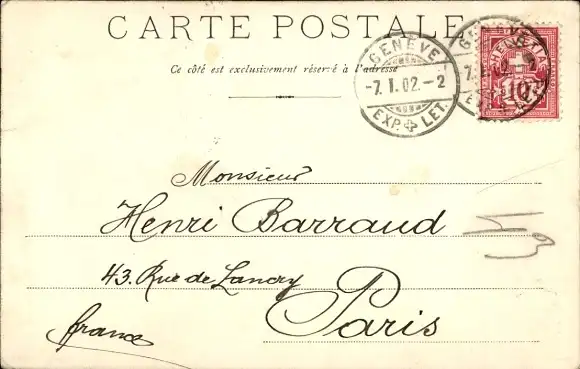 CARTE POSTALE
Ce côté est exclusivement réservé à l'adresse
GENÈVE
-7.I.02.-2
EXP. LET.
GENÈVE
7.I.02.-2
EXP. LET.
HELVETIA
10
Monsieur
Henri Barraud
43. Rue de Lancry
Paris
France